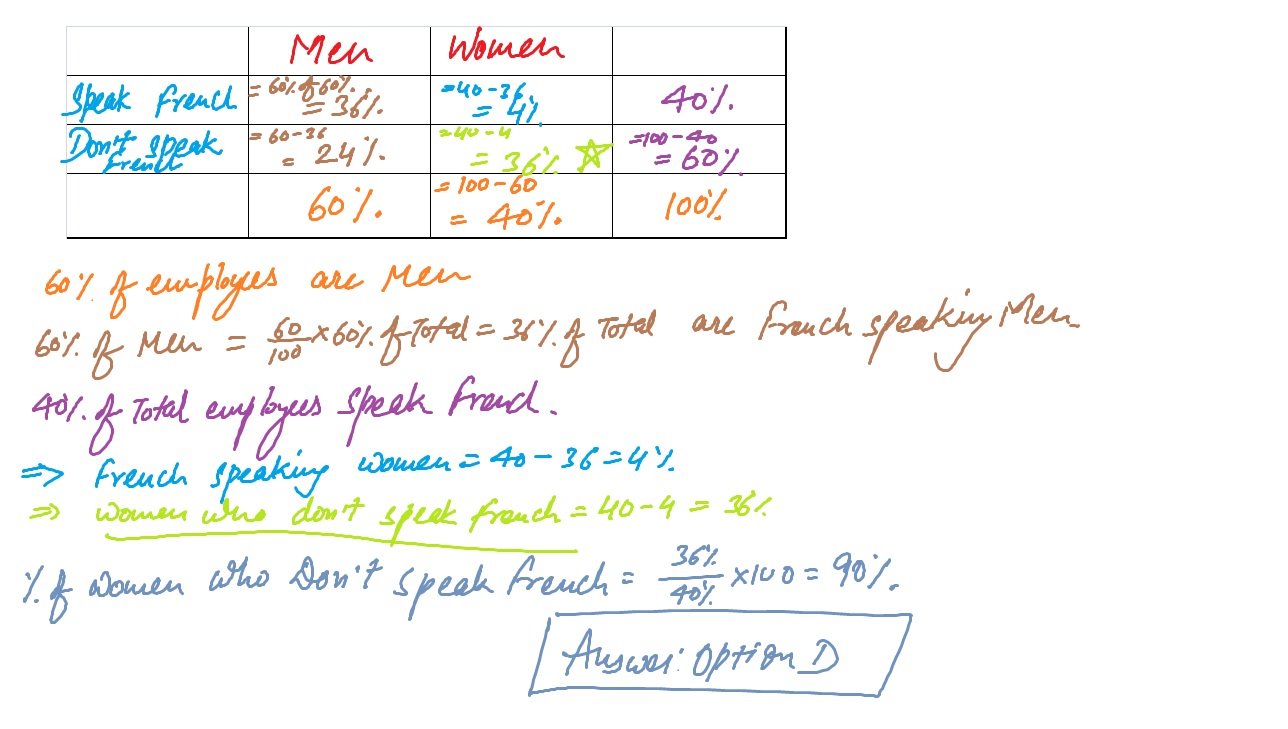 Men Women
= 60% of 60% = 40 - 36
Speak French = 36% = 4% 40%
= 60 - 36 = 40 - 4 = 100 - 40
Don't speak French = 24% = 36% = 60%
= 100 - 60
60% = 40% 100%
60% of employees are Men
60% of Men = 60/100 × 60% of Total = 36% of Total are French speaking Men
40% of Total employees speak French.
⇒ French speaking women = 40 - 36 = 4%
⇒ Women who don't speak french = 40 - 4 = 36%
% of Women who Don't speak french = 36%/40% × 100 = 90%.
Answer: Option D